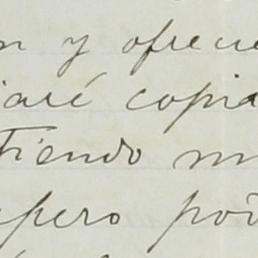 n y ofrecie
iaré copia
tiendo m
spero pod